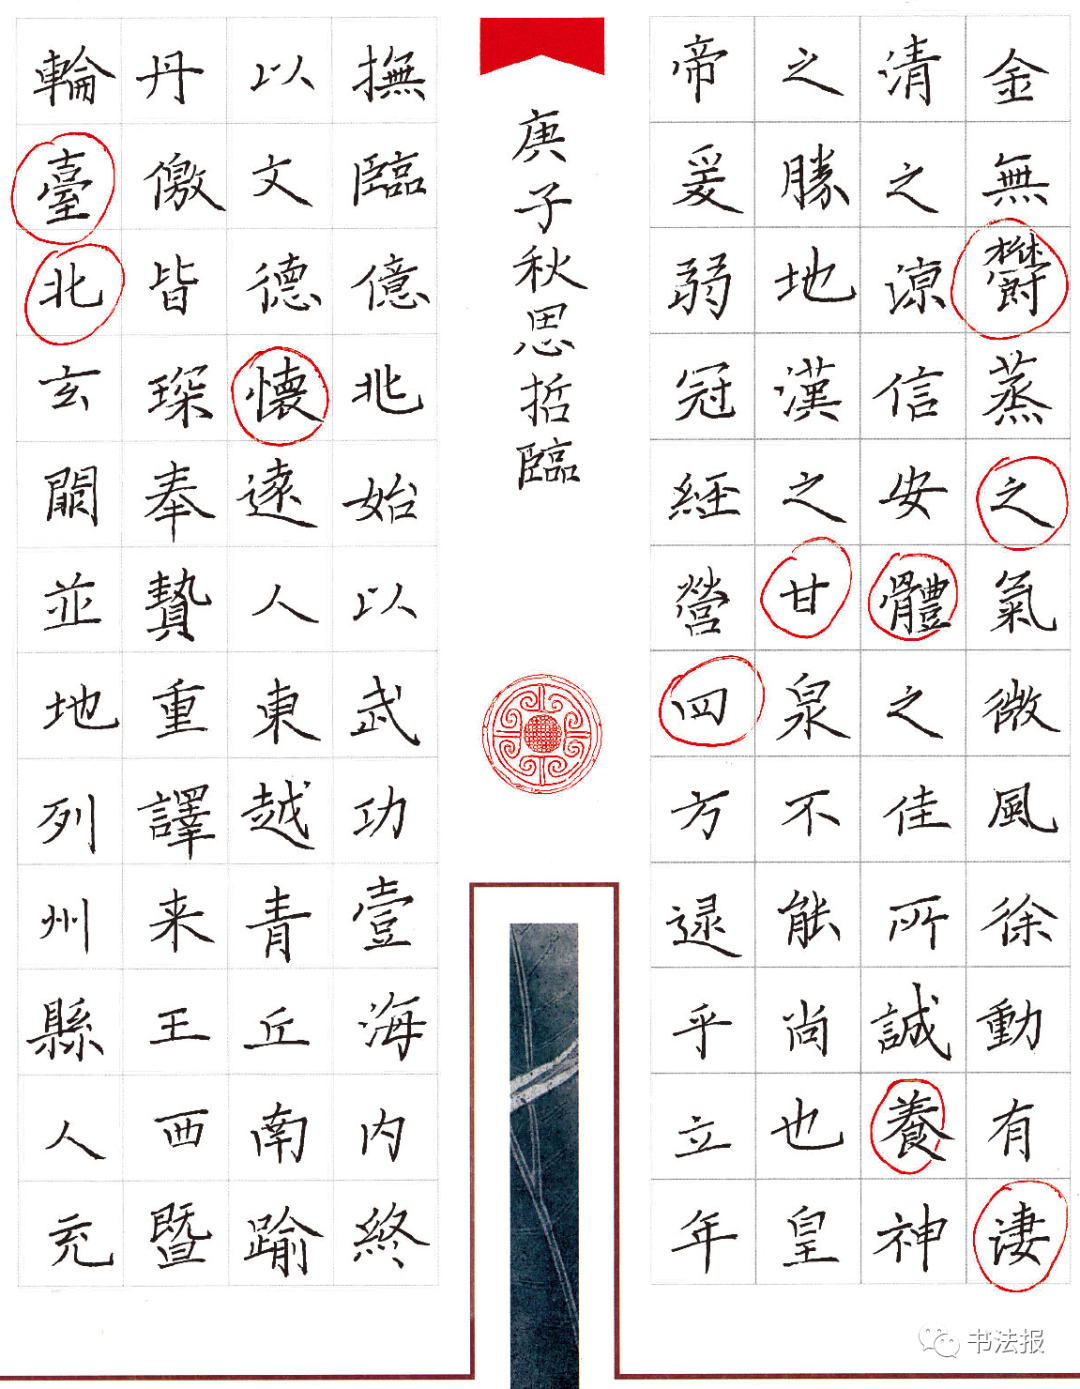 金無欝蒸之氣微風徐動有淒
清之涼信安體之佳所誠養神
之勝地漢之甘泉不能尚也皇
帝爰弱冠經營四方逮乎立年
庚子秋思哲臨
撫臨億兆始以武功壹海内終
以文德懷遠人東越青丘南踰
丹儌皆琛奉贄重譯来王西暨
輪臺北玄闕並地列州縣人充
书法报